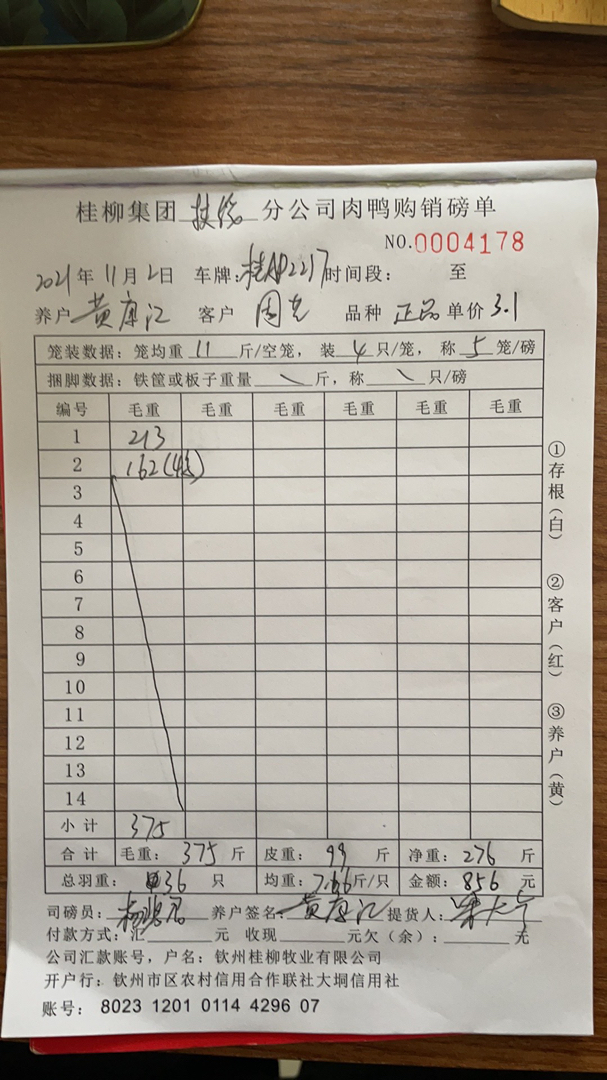 桂柳集团 扶绥 分公司肉鸭购销磅单
NO.0004178
2021年 11月 2日 车牌: 2217 时间段: 至
养户 黄康江 客户 周 品种 正品 单价 3.1
笼装数据: 笼均重 11 斤/空笼, 装 4 只/笼, 称 5 笼/磅
捆脚数据: 铁筐或板子重量 \ 斤, 称 \ 只/磅
编号 毛重 毛重 毛重 毛重 毛重 毛重
1 213
2 162(4
3
4
5
6
7
8
9
10
11
12
13
14
小计 375
合计 毛重: 375 斤 皮重: 99 斤 净重: 276 斤
总羽重: 36 只 均重: 7.66 斤/只 金额: 856 元
司磅员: 杨 养户签名: 黄康江 提货人:
付款方式: 汇 元 收现 元欠(余): 元
公司汇款账号, 户名: 钦州桂柳牧业有限公司
开户行: 钦州市区农村信用合作联社大垌信用社
账号: 8023 1201 0114 4296 07
①存根(白)
②客户(红)
③养户(黄)